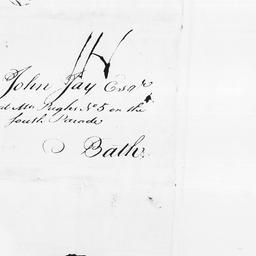 John Jay Esqr
at Mrs Pughs No 5 on the
South Parade
Bath